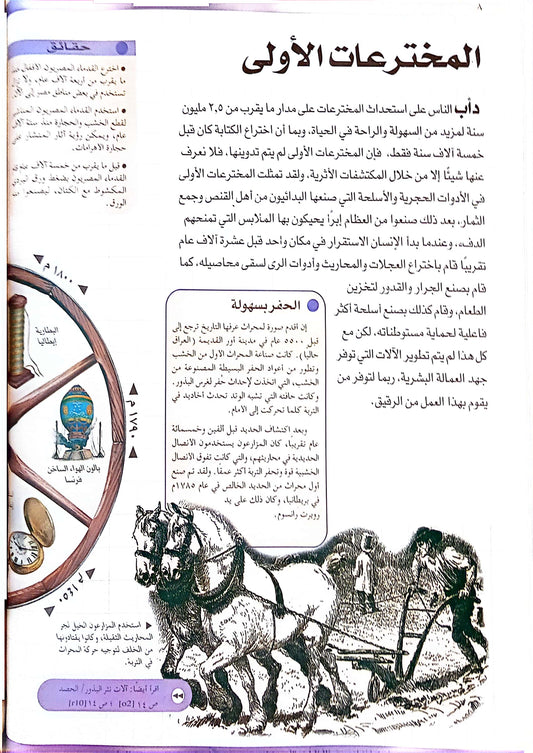 ٨
المخترعات الأولى
دأب الناس على استحداث المخترعات على مدار ما يقرب من ٢,٥ مليون
سنة لمزيد من السهولة والراحة في الحياة، وبما أن اختراع الكتابة كان قبل
خمسة آلاف سنة فقط، فإن المخترعات الأولى لم يتم تدوينها، فلا نعرف
عنها شيئًا إلا من خلال المكتشفات الأثرية. ولقد تمثلت المخترعات الأولى
في الأدوات الحجرية والأسلحة التي صنعها البدائيون من أهل القنص وجمع
الثمار، بعد ذلك صنعوا من العظام إبرًا يحيكون بها الملابس التي تمنحهم
الدفء، وعندما بدأ الإنسان الاستقرار في مكان واحد قبل عشرة آلاف عام
تقريبًا قام باختراع العجلات والمحاريث وأدوات الرى لسقى محاصيله، كما
قام بصنع الجرار والقدور لتخزين
الطعام، وقام كذلك بصنع أسلحة أكثر
فاعلية لحماية مستوطناته، لكن مع
كل هذا لم يتم تطوير الآلات التي توفر
جهد العمالة البشرية، ربما لتوفر من
يقوم بهذا العمل من الرقيق.
الحفر بسهولة
إن أقدم صورة لمحراث عرفها التاريخ ترجع إلى
قبل ٥٥٠٠ عام في مدينة أور القديمة (العراق
حاليا). كانت صناعة المحراث الأول من الخشب
وتطور من أعواد الحفر البسيطة المصنوعة من
الخشب، التي اتخذت لإحداث حُفر لغرس البذور.
وكانت حافته التي تشبه الوتد تحدث أخاديد في
التربة كلما تحركت إلى الأمام.
وبعد اكتشاف الحديد قبل ألفين وخمسمائة
عام تقريبًا، كان المزارعون يستخدمون الأنصال
الحديدية في محاريثهم، والتي كانت تفوق الأنصال
الخشبية قوة وتحفر التربة أكثر عمقًا. ولقد تم صنع
أول محراث من الحديد الخالص في عام ١٧٨٥م
في بريطانيا، وكان ذلك على يد
روبرت رانسوم.
حقائق
اخترع القدماء المصريون الأقفال
ما يقرب من أربعة آلاف عام، ولا
تستخدم في بعض مناطق مصر إلى
استخدم القدماء المصريون
لقطع الخشب والحجارة منذ ستة
عام، ويمكن رؤية آثار المنشار على
حجارة الأهرامات.
قبل ما يقرب من خمسة آلاف عام
القدماء المصريون بضغط ورق البردي
المكشوط مع الكتان، ليصنعوا
الورق.
١٨٠٠ م
البطارية
إيطاليا
١٧٩٠ م
بالون الهواء الساخن
فرنسا
١٤٥٠ م
استخدم المزارعون الخيل لجر
المحاريث الثقيلة، وكانوا يقتادونها
من الخلف لتوجيه حركة المحراث
في التربة.
اقرأ أيضًا: آلات نثر البذور/ الحصد
ص ١٤ [o2] ؛ ص ١٤ [r10]